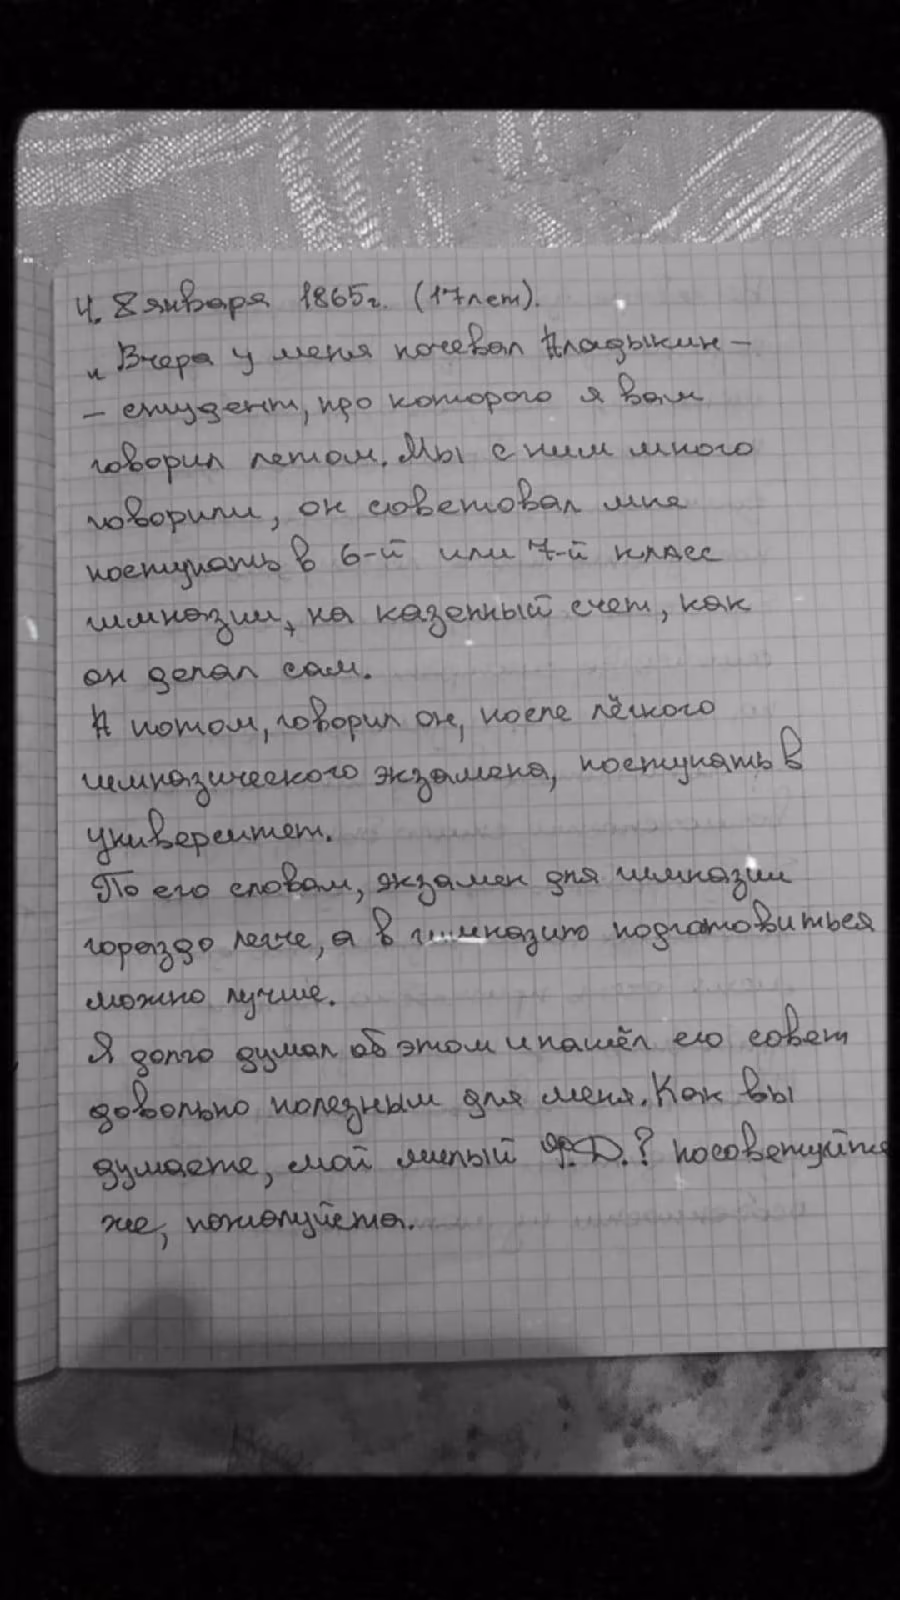 4. 8 января 1865г. (17 лет).
„ Вчера у меня ночевал Аладыкин –
– студент, про которого я вам
говорил летом. Мы с ним много
говорили, он советовал мне
поступать в 6-й или 7-й класс
гимназии, на казенный счет, как
он делал сам.
А потом, говорил он, после лёгкого
гимназического экзамена, поступать в
университет.
По его словам, экзамен для гимназии
гораздо легче, а в гимназию подготовиться
можно лучше.
Я долго думал об этом и нашёл его совет
довольно полезным для меня. Как вы
думаете, мой милый Ф.Д.? посоветуйте
же, пожалуйста.